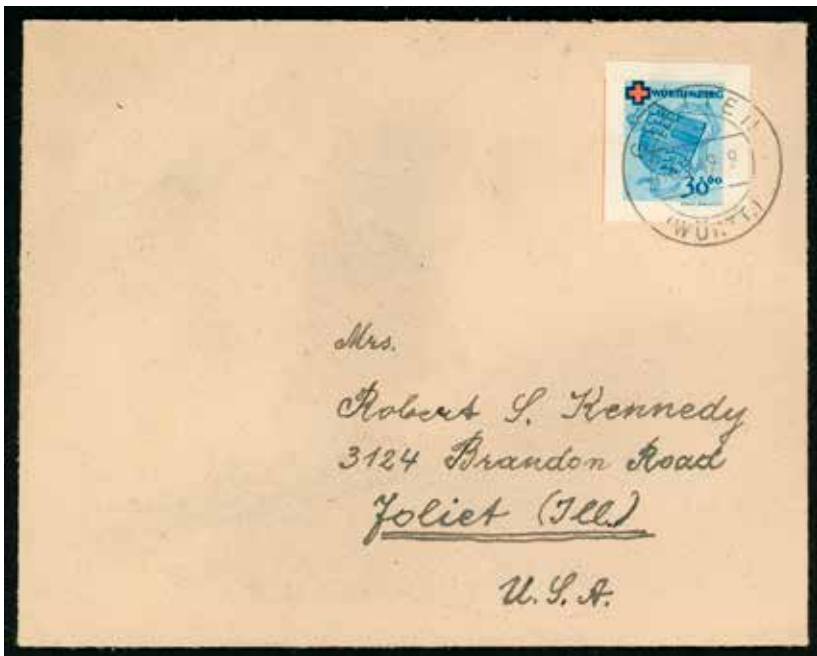 WÜRTTEMBERG
30
(WÜRTT.)
Mrs.
Robert S. Kennedy
3124 Brandon Road
Joliet (Ill.)
U.S.A.